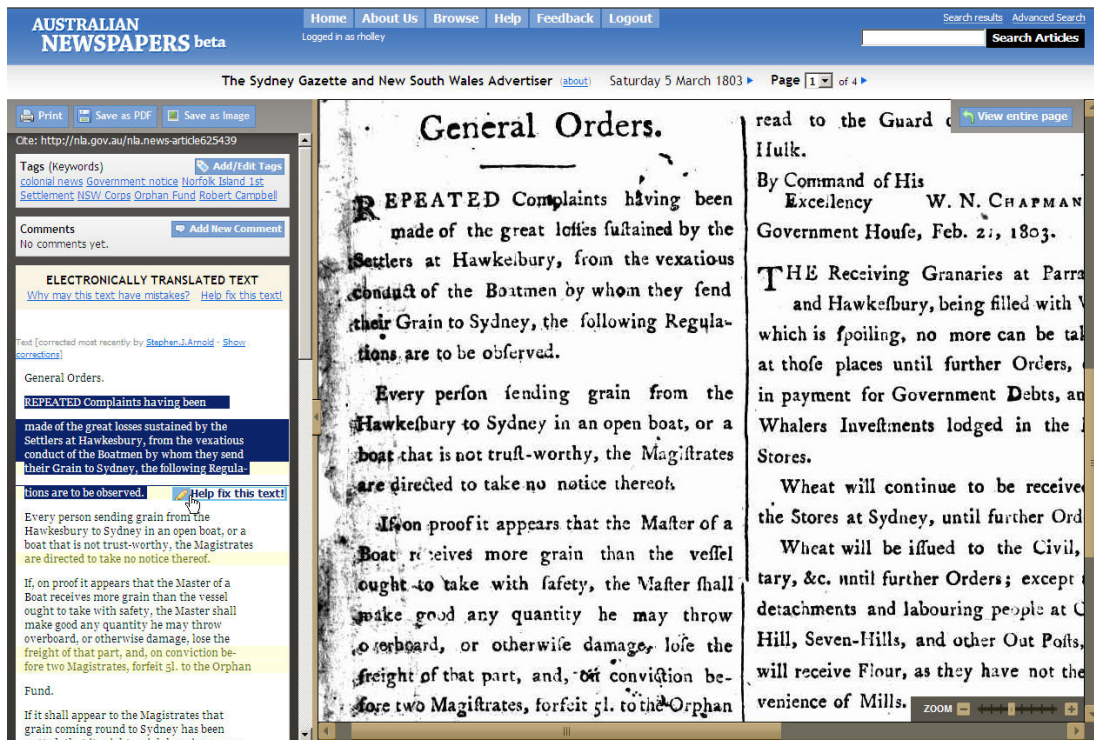 AUSTRALIAN
NEWSPAPERS beta
Home About Us Browse Help Feedback Logout
Logged in as rholley
Search results Advanced Search
Search Articles
The Sydney Gazette and New South Wales Advertiser (about) Saturday 5 March 1803 Page 1 of 4
Print Save as PDF Save as Image
Cite: http://nla.gov.au/nla.news-article625439
Tags (Keywords) Add/Edit Tags
colonial news Government notice Norfolk Island 1st
Settlement NSW Corps Orphan Fund Robert Campbell
Comments Add New Comment
No comments yet.
ELECTRONICALLY TRANSLATED TEXT
Why may this text have mistakes? Help fix this text!
Text [corrected most recently by Stephen.J.Arnold - Show
corrections]
General Orders.
REPEATED Complaints having been
made of the great losses sustained by the
Settlers at Hawkesbury, from the vexatious
conduct of the Boatmen by whom they send
their Grain to Sydney, the following Regula-
tions are to be observed. Help fix this text!
Every person sending grain from the
Hawkesbury to Sydney in an open boat, or a
boat that is not trust-worthy, the Magistrates
are directed to take no notice thereof.
If, on proof it appears that the Master of a
Boat receives more grain than the vessel
ought to take with safety, the Master shall
make good any quantity he may throw
overboard, or otherwise damage, lose the
freight of that part, and, on conviction be-
fore two Magistrates, forfeit 5l. to the Orphan
Fund.
If it shall appear to the Magistrates that
grain coming round to Sydney has been
General Orders.
REPEATED Complaints having been
made of the great loſſes ſuſtained by the
Settlers at Hawkeſbury, from the vexatious
conduct of the Boatmen by whom they ſend
their Grain to Sydney, the following Regula-
tions are to be obſerved.
Every perſon ſending grain from the
Hawkeſbury to Sydney in an open boat, or a
boat that is not truſt-worthy, the Magiſtrates
are directed to take no notice thereof.
If on proof it appears that the Maſter of a
Boat receives more grain than the veſſel
ought to take with ſafety, the Maſter ſhall
make good any quantity he may throw
overboard, or otherwiſe damage, loſe the
freight of that part, and, on conviction be-
fore two Magiſtrates, forfeit 5l. to the Orphan
View entire page
read to the Guard
Hulk.
By Command of His
Excellency W. N. CHAPMAN
Government Houſe, Feb. 21, 1803.
THE Receiving Granaries at Parra
and Hawkeſbury, being filled with
which is ſpoiling, no more can be tak
at thoſe places until further Orders,
in payment for Government Debts, an
Whalers Inveſtments lodged in the
Stores.
Wheat will continue to be receive
the Stores at Sydney, until further Ord
Wheat will be iſſued to the Civil,
tary, &c. until further Orders; except
detachments and labouring people at
Hill, Seven-Hills, and other Out Poſts,
will receive Flour, as they have not the
venience of Mills.
ZOOM